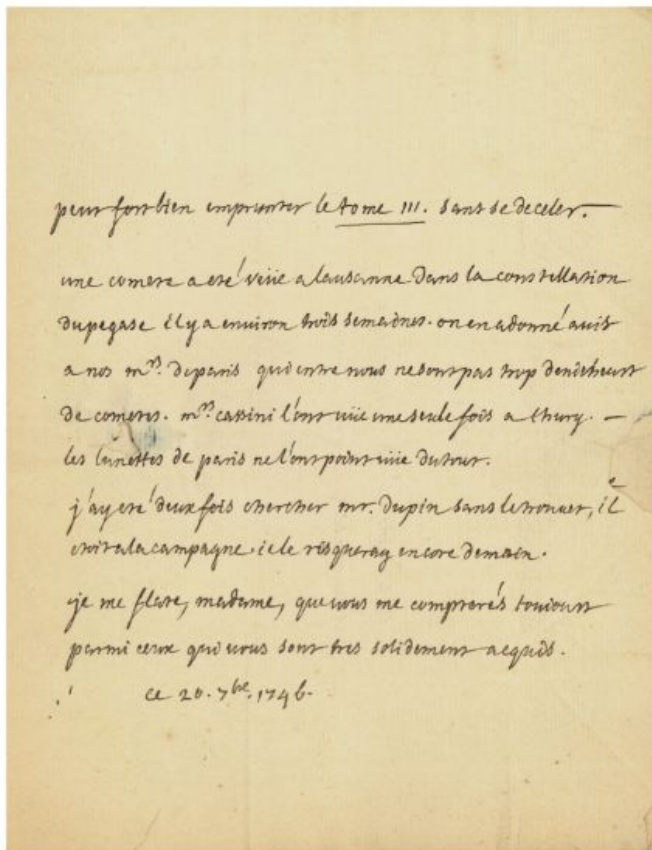 peut fort bien emprunter le tome III. sans se deceler.
une comete a eté veüe a lausanne dans la constellation
du pegase il y a environ trois semaines. on en a donné avis
a nos mrs. de paris qui entre nous ne sont pas trop denicheurs
de cometes. mrs. cassini l'ont vüe une seule fois a thury. —
les lunettes de paris ne l'ont point vüe du tout.
j'ay eté deux fois chercher mr. dupin sans le trouver, il
etoit a la campagne. ie le risqueray encore demain.
je me flate, madame, que vous me compterés toujours
parmi ceux qui vous sont tres solidement acquis.
ce 20. 7bre. 1746.